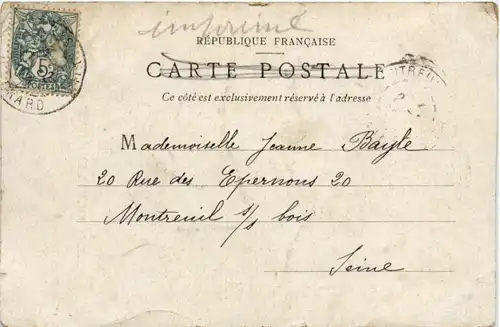 imprimé
RÉPUBLIQUE FRANÇAISE
CARTE POSTALE
Ce côté est exclusivement réservé à l'adresse
Mademoiselle Jeanne Bayle
20 Rue des Epernons 20
Montreuil s/s bois
Seine
5
POSTES
GARD
MONTREUIL